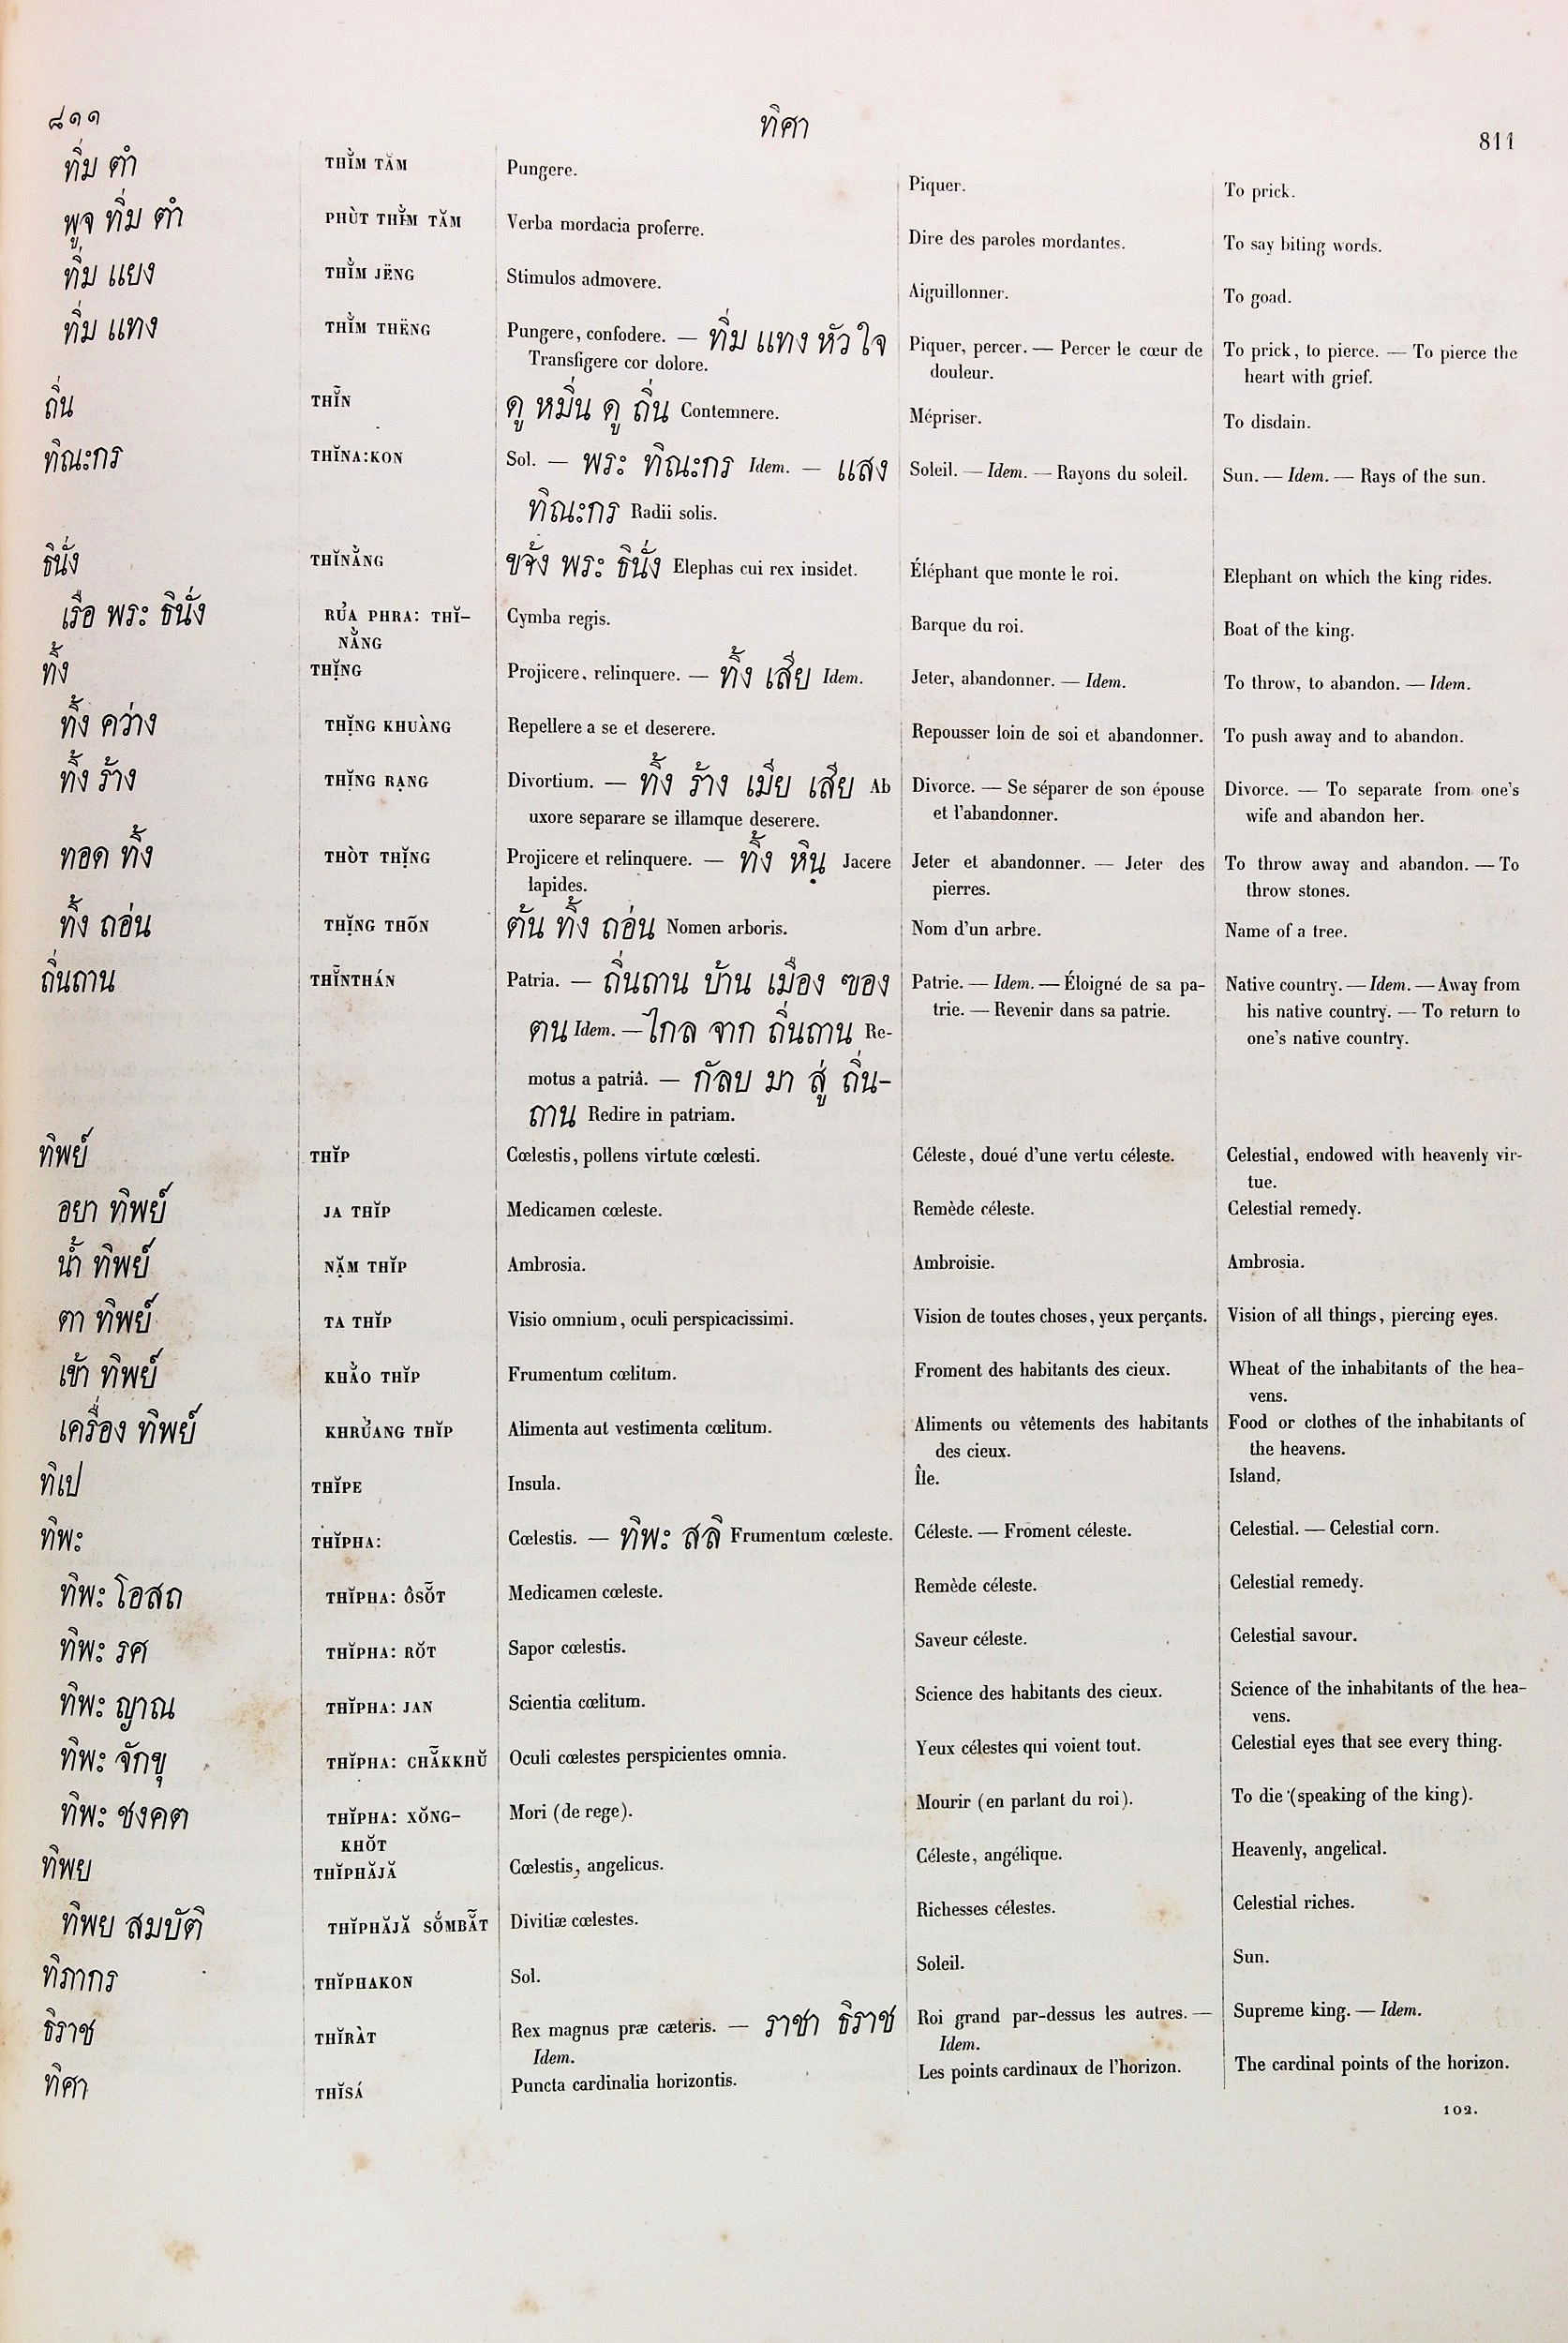 ๘๑๑ ทิศา 811
ทิ่ม ตำ THĬ̀M TĂM Pungere. Piquer. To prick.
พูจ ทิ่ม ตำ PHÙT THĬ̀M TĂM Verba mordacia proferre. Dire des paroles mordantes. To say biting words.
ทิ่ม แยง THĬ̀M JËNG Stimulos admovere. Aiguillonner. To goad.
ทิ่ม แทง THĬ̀M THËNG Pungere, confodere. — ทิ่ม แทง หัว ใจ Piquer, percer. — Percer le cœur de To prick, to pierce. — To pierce the
Transfigere cor dolore. douleur. heart with grief.
ถิ่น THĬ̃N ดู หมิ่น ดู ถิ่น Contemnere. Mépriser. To disdain.
ทิณะกร THĬNA:KON Sol. — พระ ทิณะกร Idem. — แสง Soleil. — Idem. — Rayons du soleil. Sun. — Idem. — Rays of the sun.
ทิณะกร Radii solis.
ธินั่ง THĬNẰNG ขจั้ง พระ ธินั่ง Elephas cui rex insidet. Éléphant que monte le roi. Elephant on which the king rides.
เรือ พระ ธินั่ง RỦA PHRA: THĬ- Cymba regis. Barque du roi. Boat of the king.
NẰNG
ทิ้ง THỊ̆NG Projicere, relinquere. — ทิ้ง เสีย Idem. Jeter, abandonner. — Idem. To throw, to abandon. — Idem.
ทิ้ง คว่าง THỊ̆NG KHUÀNG Repellere a se et deserere. Repousser loin de soi et abandonner. To push away and to abandon.
ทิ้ง ร้าง THỊ̆NG RẠNG Divortium. — ทิ้ง ร้าง เมีย เสีย Ab Divorce. — Se séparer de son épouse Divorce. — To separate from one's
uxore separare se illamque deserere. et l'abandonner. wife and abandon her.
ทอด ทิ้ง THÒT THỊ̆NG Projicere et relinquere. — ทิ้ง หิน Jacere Jeter et abandonner. — Jeter des To throw away and abandon. — To
lapides. pierres. throw stones.
ทิ้ง ถอ่น THỊ̆NG THÕN ต้น ทิ้ง ถอ่น Nomen arboris. Nom d'un arbre. Name of a tree.
ถิ่นถาน THĬ̃NTHÁN Patria. — ถิ่นถาน บ้าน เมือง ฃอง Patrie. — Idem. — Éloigné de sa pa- Native country. — Idem. — Away from
ตน Idem. — ไกล จาก ถิ่นถาน Re- trie. — Revenir dans sa patrie. his native country. — To return to
motus a patriâ. — กัลบ มา สู่ ถิ่น- one's native country.
ถาน Redire in patriam.
ทิพย์ THĬP Cœlestis, pollens virtute cœlesti. Céleste, doué d'une vertu céleste. Celestial, endowed with heavenly vir-
tue.
อยา ทิพย์ JA THĬP Medicamen cœleste. Remède céleste. Celestial remedy.
น้ำ ทิพย์ NẶM THĬP Ambrosia. Ambroisie. Ambrosia.
ตา ทิพย์ TA THĬP Visio omnium, oculi perspicacissimi. Vision de toutes choses, yeux perçants. Vision of all things, piercing eyes.
เข้า ทิพย์ KHẢO THĬP Frumentum cœlitum. Froment des habitants des cieux. Wheat of the inhabitants of the hea-
vens.
เครื่อง ทิพย์ KHRỦANG THĬP Alimenta aut vestimenta cœlitum. Aliments ou vêtements des habitants Food or clothes of the inhabitants of
des cieux. the heavens.
ทิเป THĬPE Insula. Île. Island.
ทิพะ THĬPHA: Cœlestis. — ทิพะ สลิ Frumentum cœleste. Céleste. — Froment céleste. Celestial. — Celestial corn.
ทิพะ โอสถ THĬPHA: ÔSŎ̃T Medicamen cœleste. Remède céleste. Celestial remedy.
ทิพะ รศ THĬPHA: RŎT Sapor cœlestis. Saveur céleste. Celestial savour.
ทิพะ ญาณ THĬPHA: JAN Scientia cœlitum. Science des habitants des cieux. Science of the inhabitants of the hea-
vens.
ทิพะ จักขุ THĬPHA: CHẴKKHŬ Oculi cœlestes perspicientes omnia. Yeux célestes qui voient tout. Celestial eyes that see every thing.
ทิพะ ชงคต THĬPHA: XŎNG- Mori (de rege). Mourir (en parlant du roi). To die (speaking of the king).
KHŎT
ทิพย THĬPHĂJĂ Cœlestis, angelicus. Céleste, angélique. Heavenly, angelical.
ทิพย สมบัติ THĬPHĂJĂ SŎ́MBẴT Divitiæ cœlestes. Richesses célestes. Celestial riches.
ทิภากร THĬPHAKON Sol. Soleil. Sun.
ธิราช THĬRÀT Rex magnus præ cæteris. — ราชา ธิราช Roi grand par-dessus les autres. — Supreme king. — Idem.
Idem. Idem.
ทิศา THĬSÁ Puncta cardinalia horizontis. Les points cardinaux de l'horizon. The cardinal points of the horizon.
102.